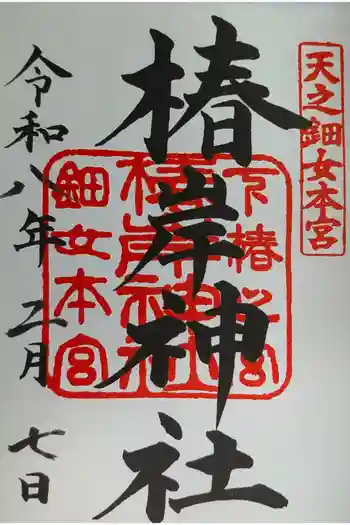 天之鈿女本宮
椿岸神社
下椿之宮
椿岸神社
鈿女本宮
令和八年二月七日